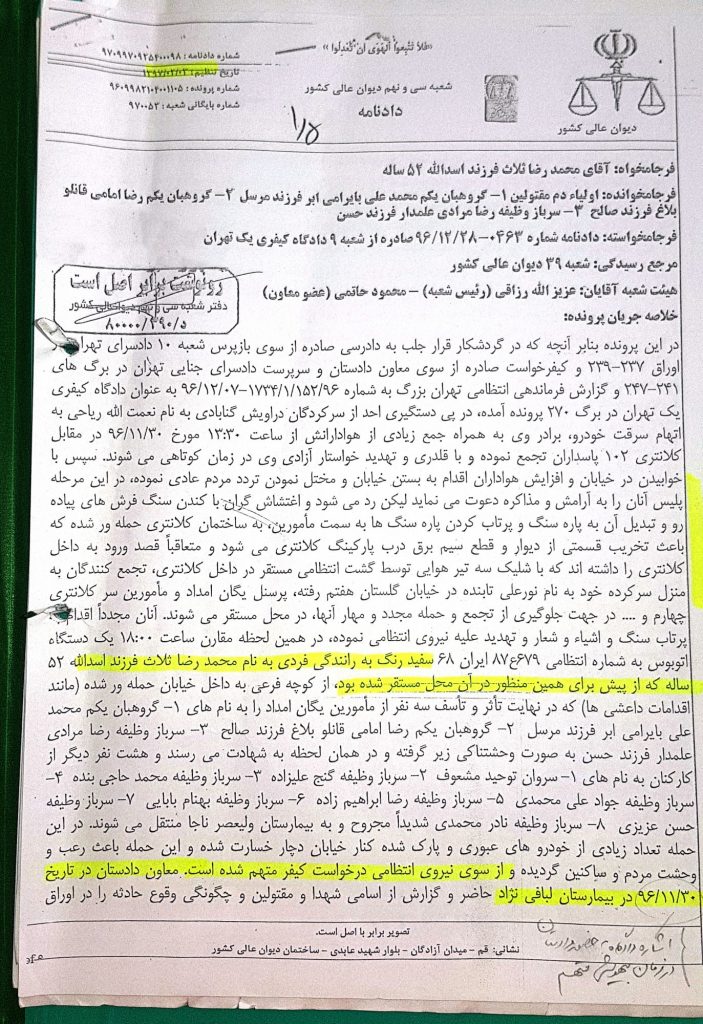 «فلا تتبعوا الهوی ان تعدلوا»
شماره دادنامه: ۹۷۰۹۹۷۰۹۲۵۴۰۰۰۹۸
تاریخ تنظیم: ۱۳۹۷/۰۲/۰۳
شماره پرونده: ۹۶۰۹۹۸۲۱۰۴۰۰۱۱۰۵
شماره بایگانی شعبه: ۹۷۰۰۵۳
شعبه سی و نهم دیوان عالی کشور
دادنامه
دیوان عالی کشور
۱/۵
فرجامخواه: آقای محمد رضا ثلاث فرزند اسدالله ۵۲ ساله
فرجامخوانده: اولیاء دم مقتولین ۱- گروهبان یکم محمد علی بایرامی ابر فرزند مرسل ۲- گروهبان یکم رضا امامی قانلو
بلاغ فرزند صالح ۳- سرباز وظیفه رضا مرادی علمدار فرزند حسن
فرجامخواسته: دادنامه شماره ۰۴۶۳-۹۶/۱۲/۲۸ صادره از شعبه ۹ دادگاه کیفری یک تهران
مرجع رسیدگی: شعبه ۳۹ دیوان عالی کشور
هیئت شعبه آقایان: عزیز الله رزاقی (رئیس شعبه) – محمود حاتمی (عضو معاون)
خلاصه جریان پرونده:
رونوشت برابر اصل است
دفتر شعبه سی و نهم دیوانعالی کشور
۸۰۰۰۰/۳۹۰/د
در این پرونده بنابر آنچه که در گردشکار قرار جلب به دادرسی صادره از سوی بازپرس شعبه ۱۰ دادسرای تهران
اوراق ۲۳۷-۲۳۹ و کیفرخواست صادره از سوی معاون دادستان و سرپرست دادسرای جنایی تهران در برگ های
۲۴۱-۲۴۷ و گزارش فرماندهی انتظامی تهران بزرگ به شماره ۱۷۳۴/۱/۱۵۲/۹۶-۹۶/۱۲/۰۷ به عنوان دادگاه کیفری
یک تهران در برگ ۲۷۰ پرونده آمده، در پی دستگیری احد از سرکردگان دراویش گنابادی به نام نعمت الله ریاحی به
اتهام سرقت خودرو، برادر وی به همراه جمع زیادی از هوادارانش از ساعت ۱۳:۳۰ مورخ ۹۶/۱۱/۳۰ در مقابل
کلانتری ۱۰۲ پاسداران تجمع نموده و با قلدری و تهدید خواستار آزادی وی در زمان کوتاهی می شوند. سپس با
خوابیدن در خیابان و افزایش هواداران اقدام به بستن خیابان و مختل نمودن تردد مردم عادی نموده، در این مرحله
پلیس آنان را به آرامش و مذاکره دعوت می نماید لیکن رد می شود و اغتشاش گران با کندن سنگ فرش های پیاده
رو و تبدیل آن به پاره سنگ و پرتاب کردن پاره سنگ ها به سمت مأمورین، به ساختمان کلانتری حمله ور شده که
باعث تخریب قسمتی از دیوار و قطع سیم برق درب پارکینگ کلانتری می شود و متعاقباً قصد ورود به داخل
کلانتری را داشته اند که با شلیک سه تیر هوایی توسط گشت انتظامی مستقر در داخل کلانتری، تجمع کنندگان به
منزل سرکرده خود به نام نورعلی تابنده در خیابان گلستان هفتم رفته، پرسنل یگان امداد و مأمورین سر کلانتری
چهارم و .... در جهت جلوگیری از تجمع و حمله مجدد و مهار آنها، در محل مستقر می شوند. آنان مجدداً اقدام به
پرتاب سنگ و اشیاء و شعار و تهدید علیه نیروی انتظامی نموده، در همین لحظه مقارن ساعت ۱۸:۰۰ یک دستگاه
اتوبوس به شماره انتظامی ۶۷۹ع۸۷ ایران ۶۸ سفید رنگ به رانندگی فردی به نام محمد رضا ثلاث فرزند اسدالله ۵۲
ساله که از پیش برای همین منظور در آن محل مستقر شده بود، از کوچه فرعی به داخل خیابان حمله ور شده (مانند
اقدامات داعشی ها) که در نهایت تأثر و تأسف سه نفر از مأمورین یگان امداد را به نام های ۱- گروهبان یکم محمد
علی بایرامی ابر فرزند مرسل ۲- گروهبان یکم رضا امامی قانلو بلاغ فرزند صالح ۳- سرباز وظیفه رضا مرادی
علمدار فرزند حسن به صورت وحشتناکی زیر گرفته و در همان لحظه به شهادت می رسند و هشت نفر دیگر از
کارکنان به نام های ۱- سروان توحید مشعوف ۲- سرباز وظیفه گنج علیزاده ۳- سرباز وظیفه محمد حاجی بنده ۴-
سرباز وظیفه جواد علی محمدی ۵- سرباز وظیفه رضا ابراهیم زاده ۶- سرباز وظیفه بهنام بابایی ۷- سرباز وظیفه
حسن عزیزی ۸- سرباز وظیفه نادر محمدی شدیداً مجروح و به بیمارستان ولیعصر ناجا منتقل می شوند. در این
حمله تعداد زیادی از خودرو های عبوری و پارک شده کنار خیابان دچار خسارت شده و این حمله باعث رعب و
وحشت مردم و ساکنین گردیده و از سوی نیروی انتظامی درخواست کیفر متهم شده است. معاون دادستان در تاریخ
۹۶/۱۱/۳۰ در بیمارستان لبافی نژاد حاضر و گزارش از اسامی شهدا و مقتولین و چگونگی وقوع حادثه را در اوراق
تصویر برابر با اصل است.
نشانی: قم – میدان آزادگان – بلوار شهید عابدی – ساختمان دیوان عالی کشور
اشاره دادگاه به حضور دادستان
در زمان بیهوشی متهم